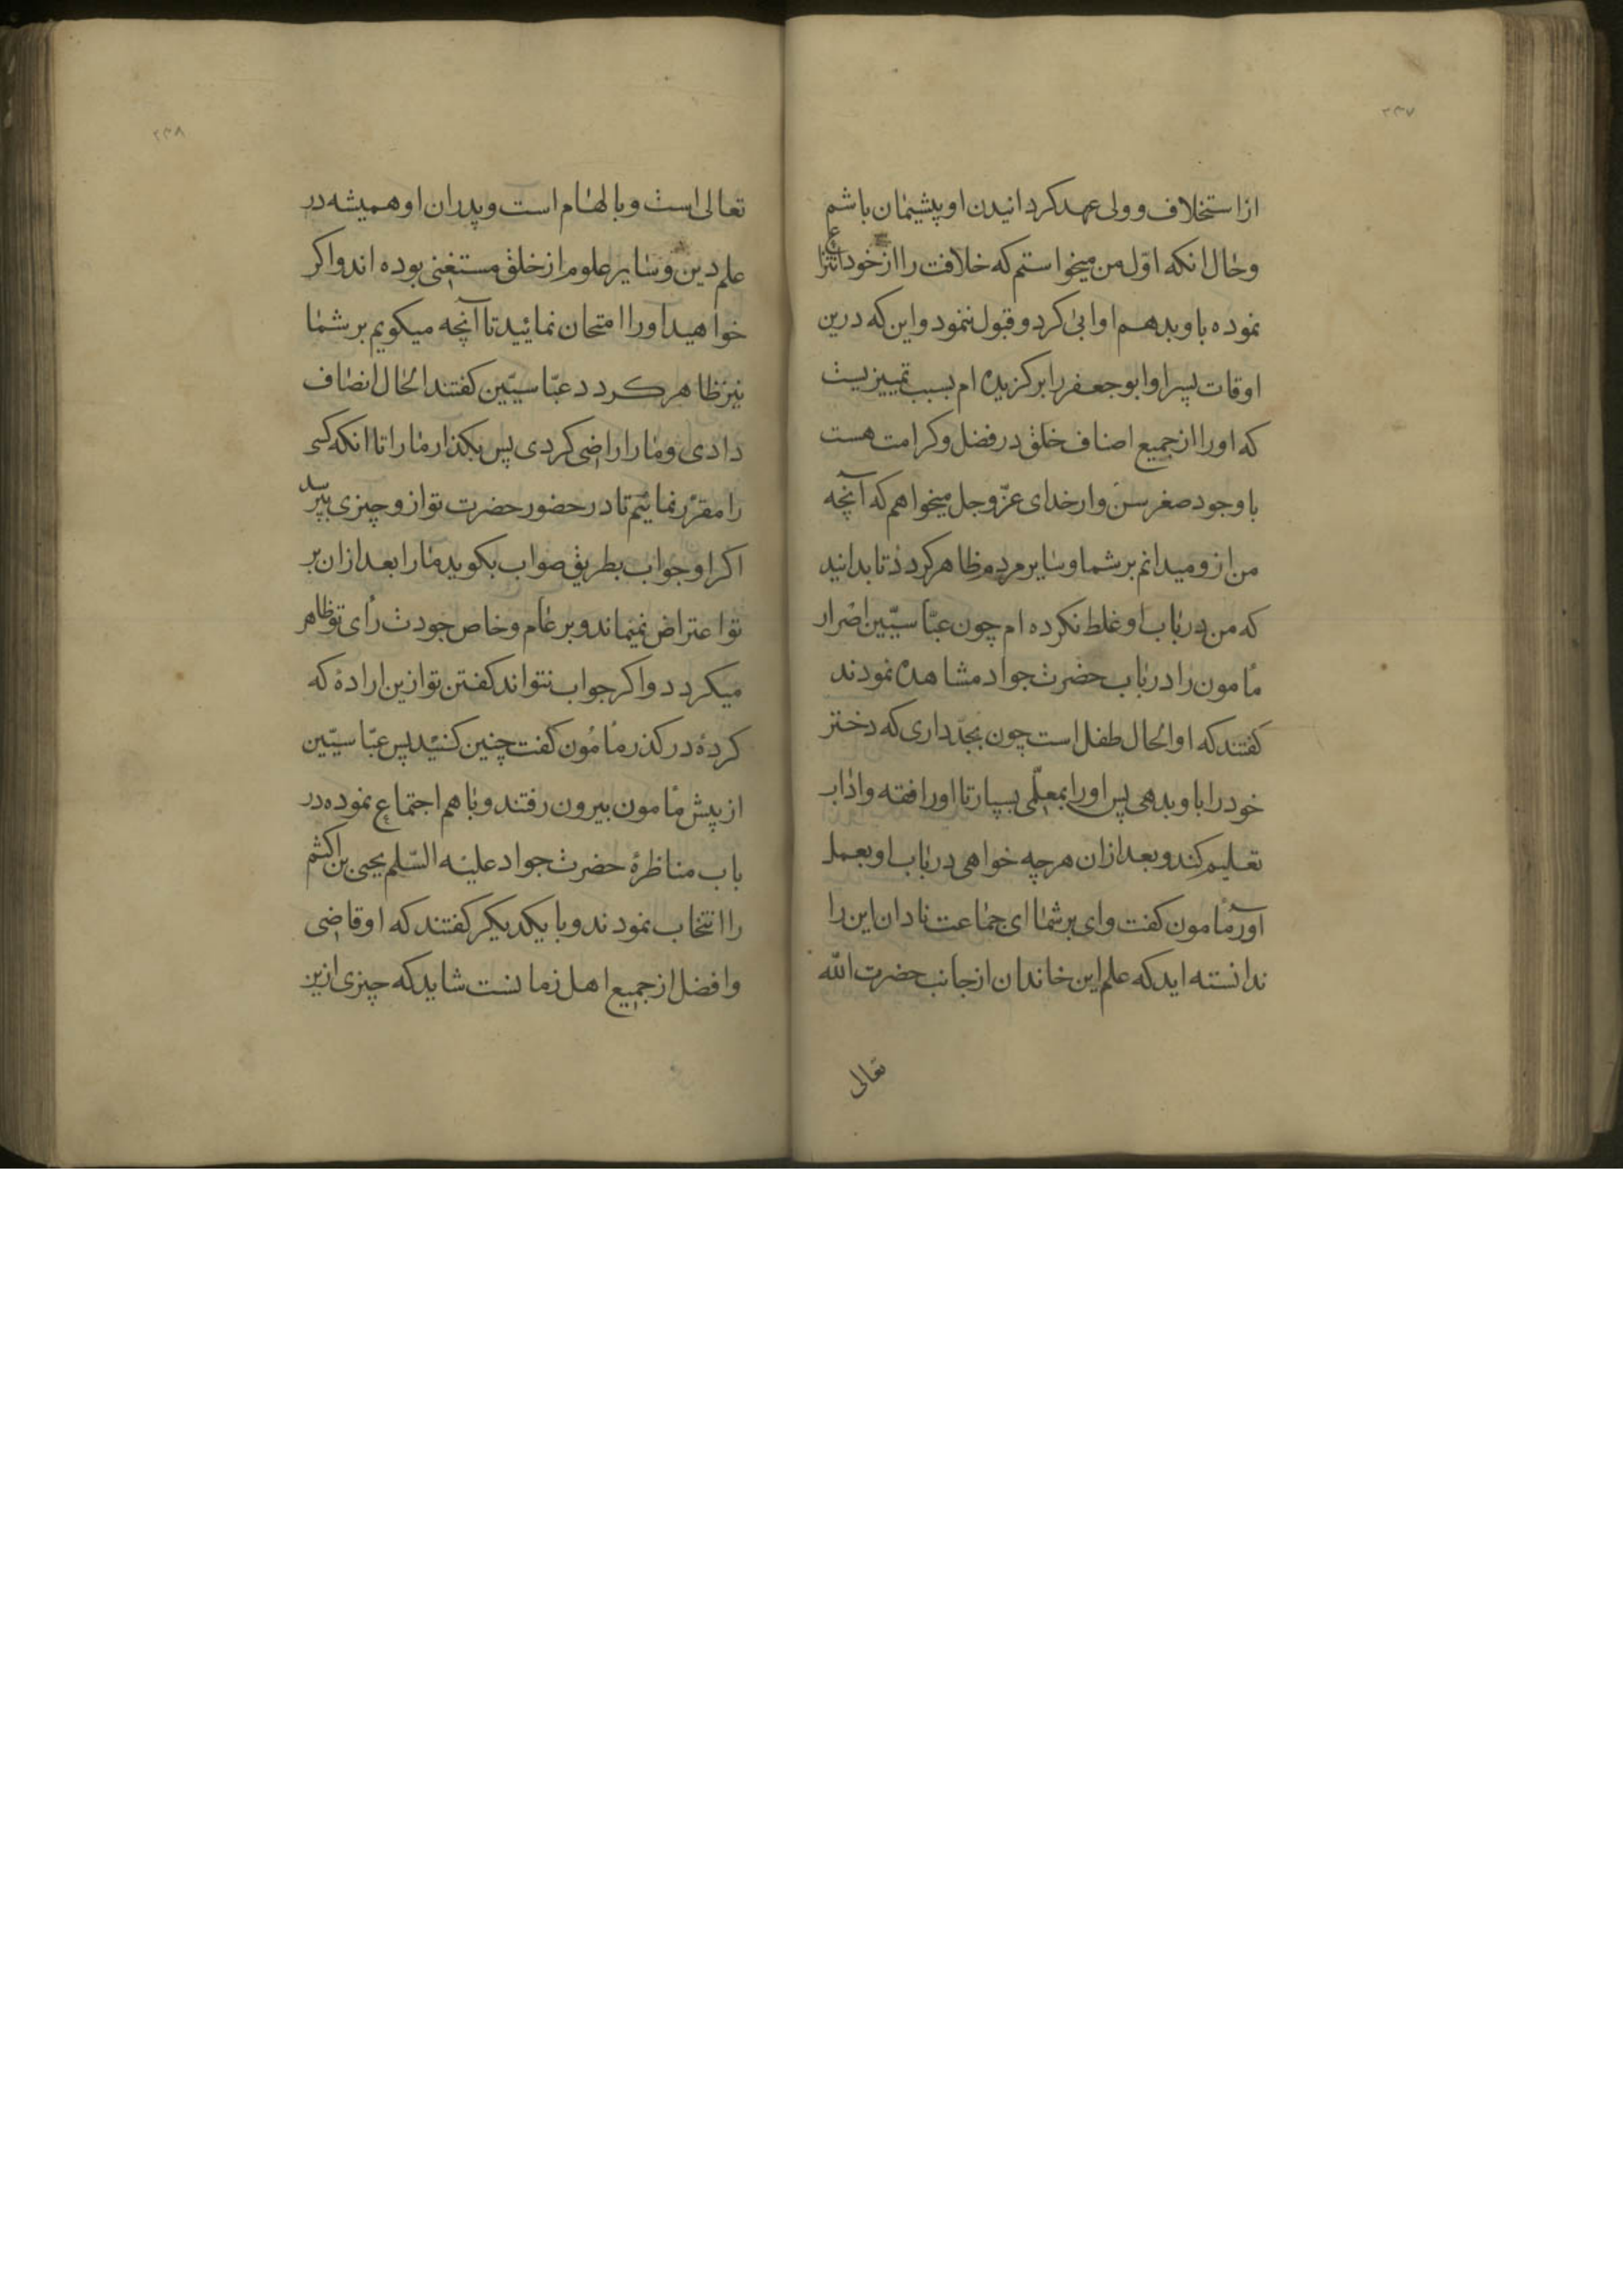 ۲۳۷
از استخلاف و ولی عهد کردانیدن او پشیمان باشم
و حال انکه اوّل من میخواستم که خلافت را از خود انتزاع
نموده باو بدهم او ابی کرد و قبول ننمود و این که درین
اوقات پسر او ابو جعفر را بر کزیده ام بسبب تمییزیست
که او را از جمیع اصناف خلق در فضل و کرامت هست
با وجود صغر سن و از خدای عزّ و جل میخواهم که آنچه
من ازو میدانم بر شما و سایر مردم ظاهر کردد تا بدانید
که من در باب او غلط نکرده ام چون عبّاسیّین اصرار
مأمون را در باب حضرت جواد مشاهده نمودند
کفتند که او الحال طفل است چون بجدّ داری که دختر
خود را باو بدهی پس او را بمعلّمی بسپار تا او را فقه و اداب
تعلیم کند و بعد ازان هر چه خواهی در باب او بعمل
آور مأمون کفت وای بر شما ای جماعت نادان این را
ندانسته اید که علم این خاندان از جانب حضرت الله
تعالی
۲۳۸
تعالی است و بالهام است و پدران او همیشه در
علم دین و سایر علوم از خلق مستغنی بوده اند و اکر
خواهید او را امتحان نمائید تا آنچه میکویم بر شما
نیز ظاهر کردد عبّاسیّین کفتند الحال انصاف
دادی و ما را راضی کردی پس بکذار ما را تا انکه کسی
را مقرّر نمائیم تا در حضور حضرت تو ازو چیزی بپرسد
اکر او جواب بطریق صواب بکوید ما را بعد ازان بر
تو اعتراض نمیماند و بر عام و خاص جودت رأی تو ظاهر
میکردد و اکر جواب نتواند کفتن تو ازین ارادۀ که
کردۀ در کذر مأمون کفت چنین کنید پس عبّاسیّین
از پیش مأمون بیرون رفتند و با هم اجتماع نموده در
باب مناظرۀ حضرت جواد علیه السّلم یحیی بن اکثم
را انتخاب نمودند و با یکدیکر کفتند که او قاضی
و افضل از جمیع اهل زمانست شاید که چیزی ازین